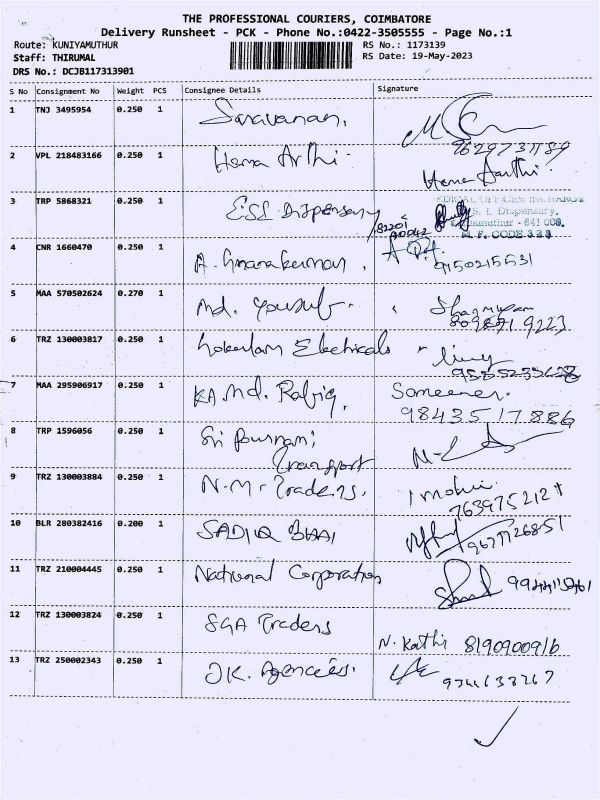 THE PROFESSIONAL COURIERS, COIMBATORE
Delivery Runsheet - PCK - Phone No.:0422-3505555 - Page No.:1
Route: KUNIYAMUTHUR
RS No.: 1173139
Staff: THIRUMAL
RS Date: 19-May-2023
DRS No.: DCJB117313901
S No Consignment No Weight PCS Consignee Details Signature
1 TNJ 3495954 0.250 1 Saravanan.
2 VPL 218483166 0.250 1 Hema Arthi Hema Aarthi
3 TRP 5868321 0.250 1 ESI Dispensary
Dispensary,
- 641 008.
M.F. CODE
4 CNR 1660470 0.250 1 A. Gnanakumar. 9150215531
5 MAA 570502624 0.270 1 Md. Yousuf.
9223
6 TRZ 130003817 0.250 1 Electricals
7 MAA 295906917 0.250 1 KA. Md. Rafiq.
9843517886
8 TRP 1596056 0.250 1 Sri Pournami
Transport
9 TRZ 130003884 0.250 1 N.M. Traders.
10 BLR 280382416 0.200 1 SADIQ BHAI
11 TRZ 210004445 0.250 1 National Corporation
12 TRZ 130003824 0.250 1 SGA Traders N. Kathi 8190900916
13 TRZ 250002343 0.250 1 JK. Agencies.